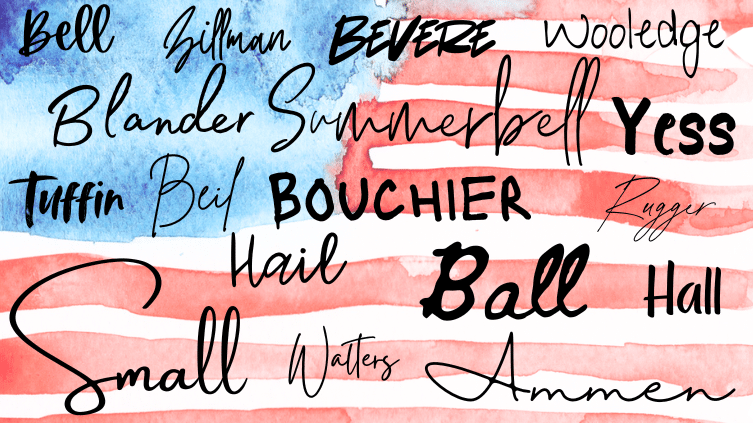 Bell Zillman BEVERE Wooledge
Blander Summerbell Yess
Tuffin Beil BOUCHIER Rugger
Hail Ball Hall
Small Walters Ammen